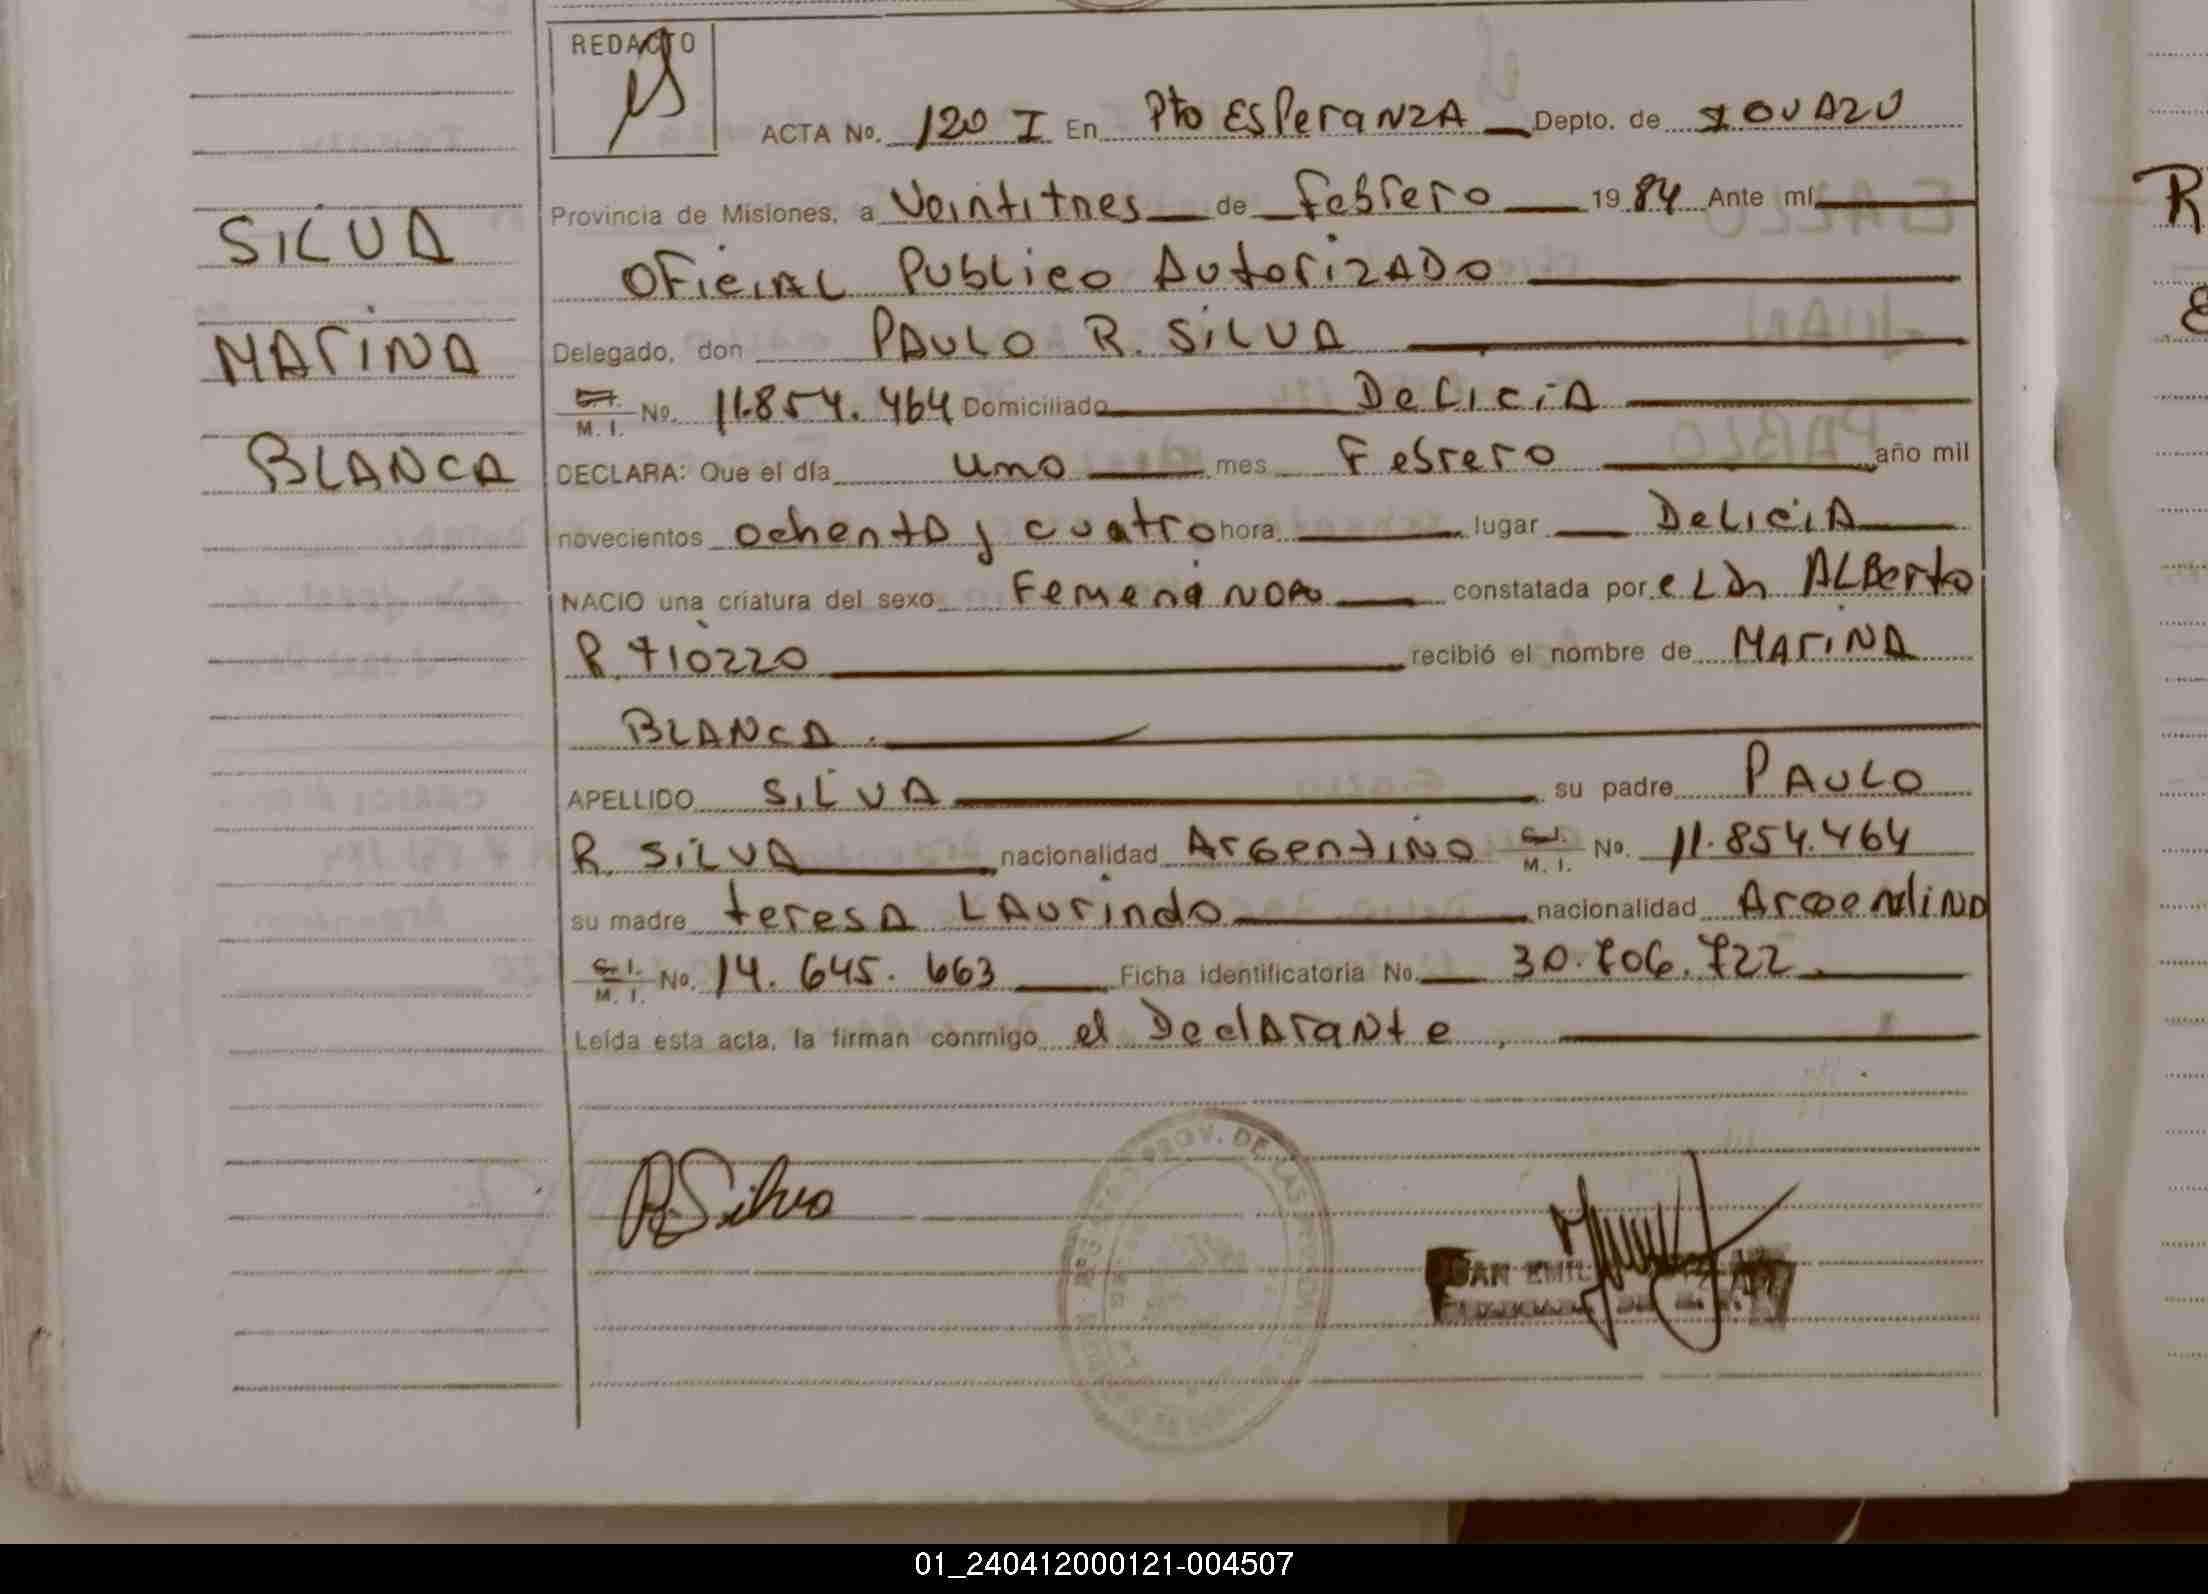 REDACTO
ACTA No. 120 I En Pto Esperanza Depto. de IGUAZU
Provincia de Misiones, a Veintitres de Febrero 1984 Ante mí
Oficial Publico Autorizado
Delegado, don PAULO R. SILVA
C.I. M. I. No. 11.854.464 Domiciliado Delicia
DECLARA: Que el día uno mes Febrero año mil
novecientos ochenta y cuatro hora lugar Delicia
NACIO una criatura del sexo constatada por el Dr Alberto
R. recibió el nombre de MARINA
BLANCA
APELLIDO SILVA su padre PAULO
R. SILVA nacionalidad Argentino C.I. M. I. No. 11.854.464
su madre teresa Laurindo nacionalidad Argentina
C.I. M. I. No. 14.645.663 Ficha identificatoria No. 30.706.722
Leída esta acta, la firman conmigo el Declarante
SILVA
MARINA
BLANCA
R Silva
PROV. DE
01_240412000121-004507